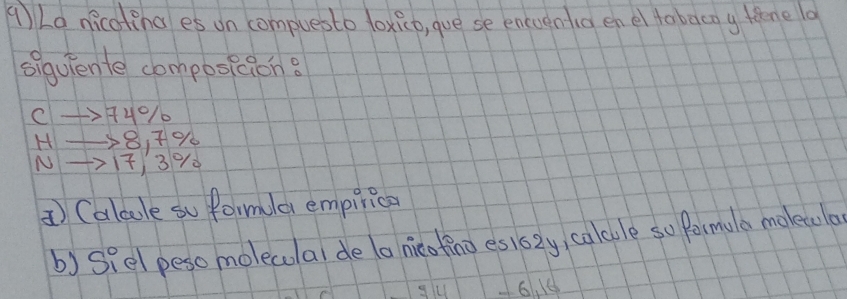 9) La nicotina es un compuesto toxico, que se encuentra en el tabaco y tiene la
siguiente composición:
C → 74%
H → 8,7%
N → 17,3%
a) Calcule su formula empirica
b) Si el peso molecular de la nicotina es 162y, calcule su formula molecular
6,16